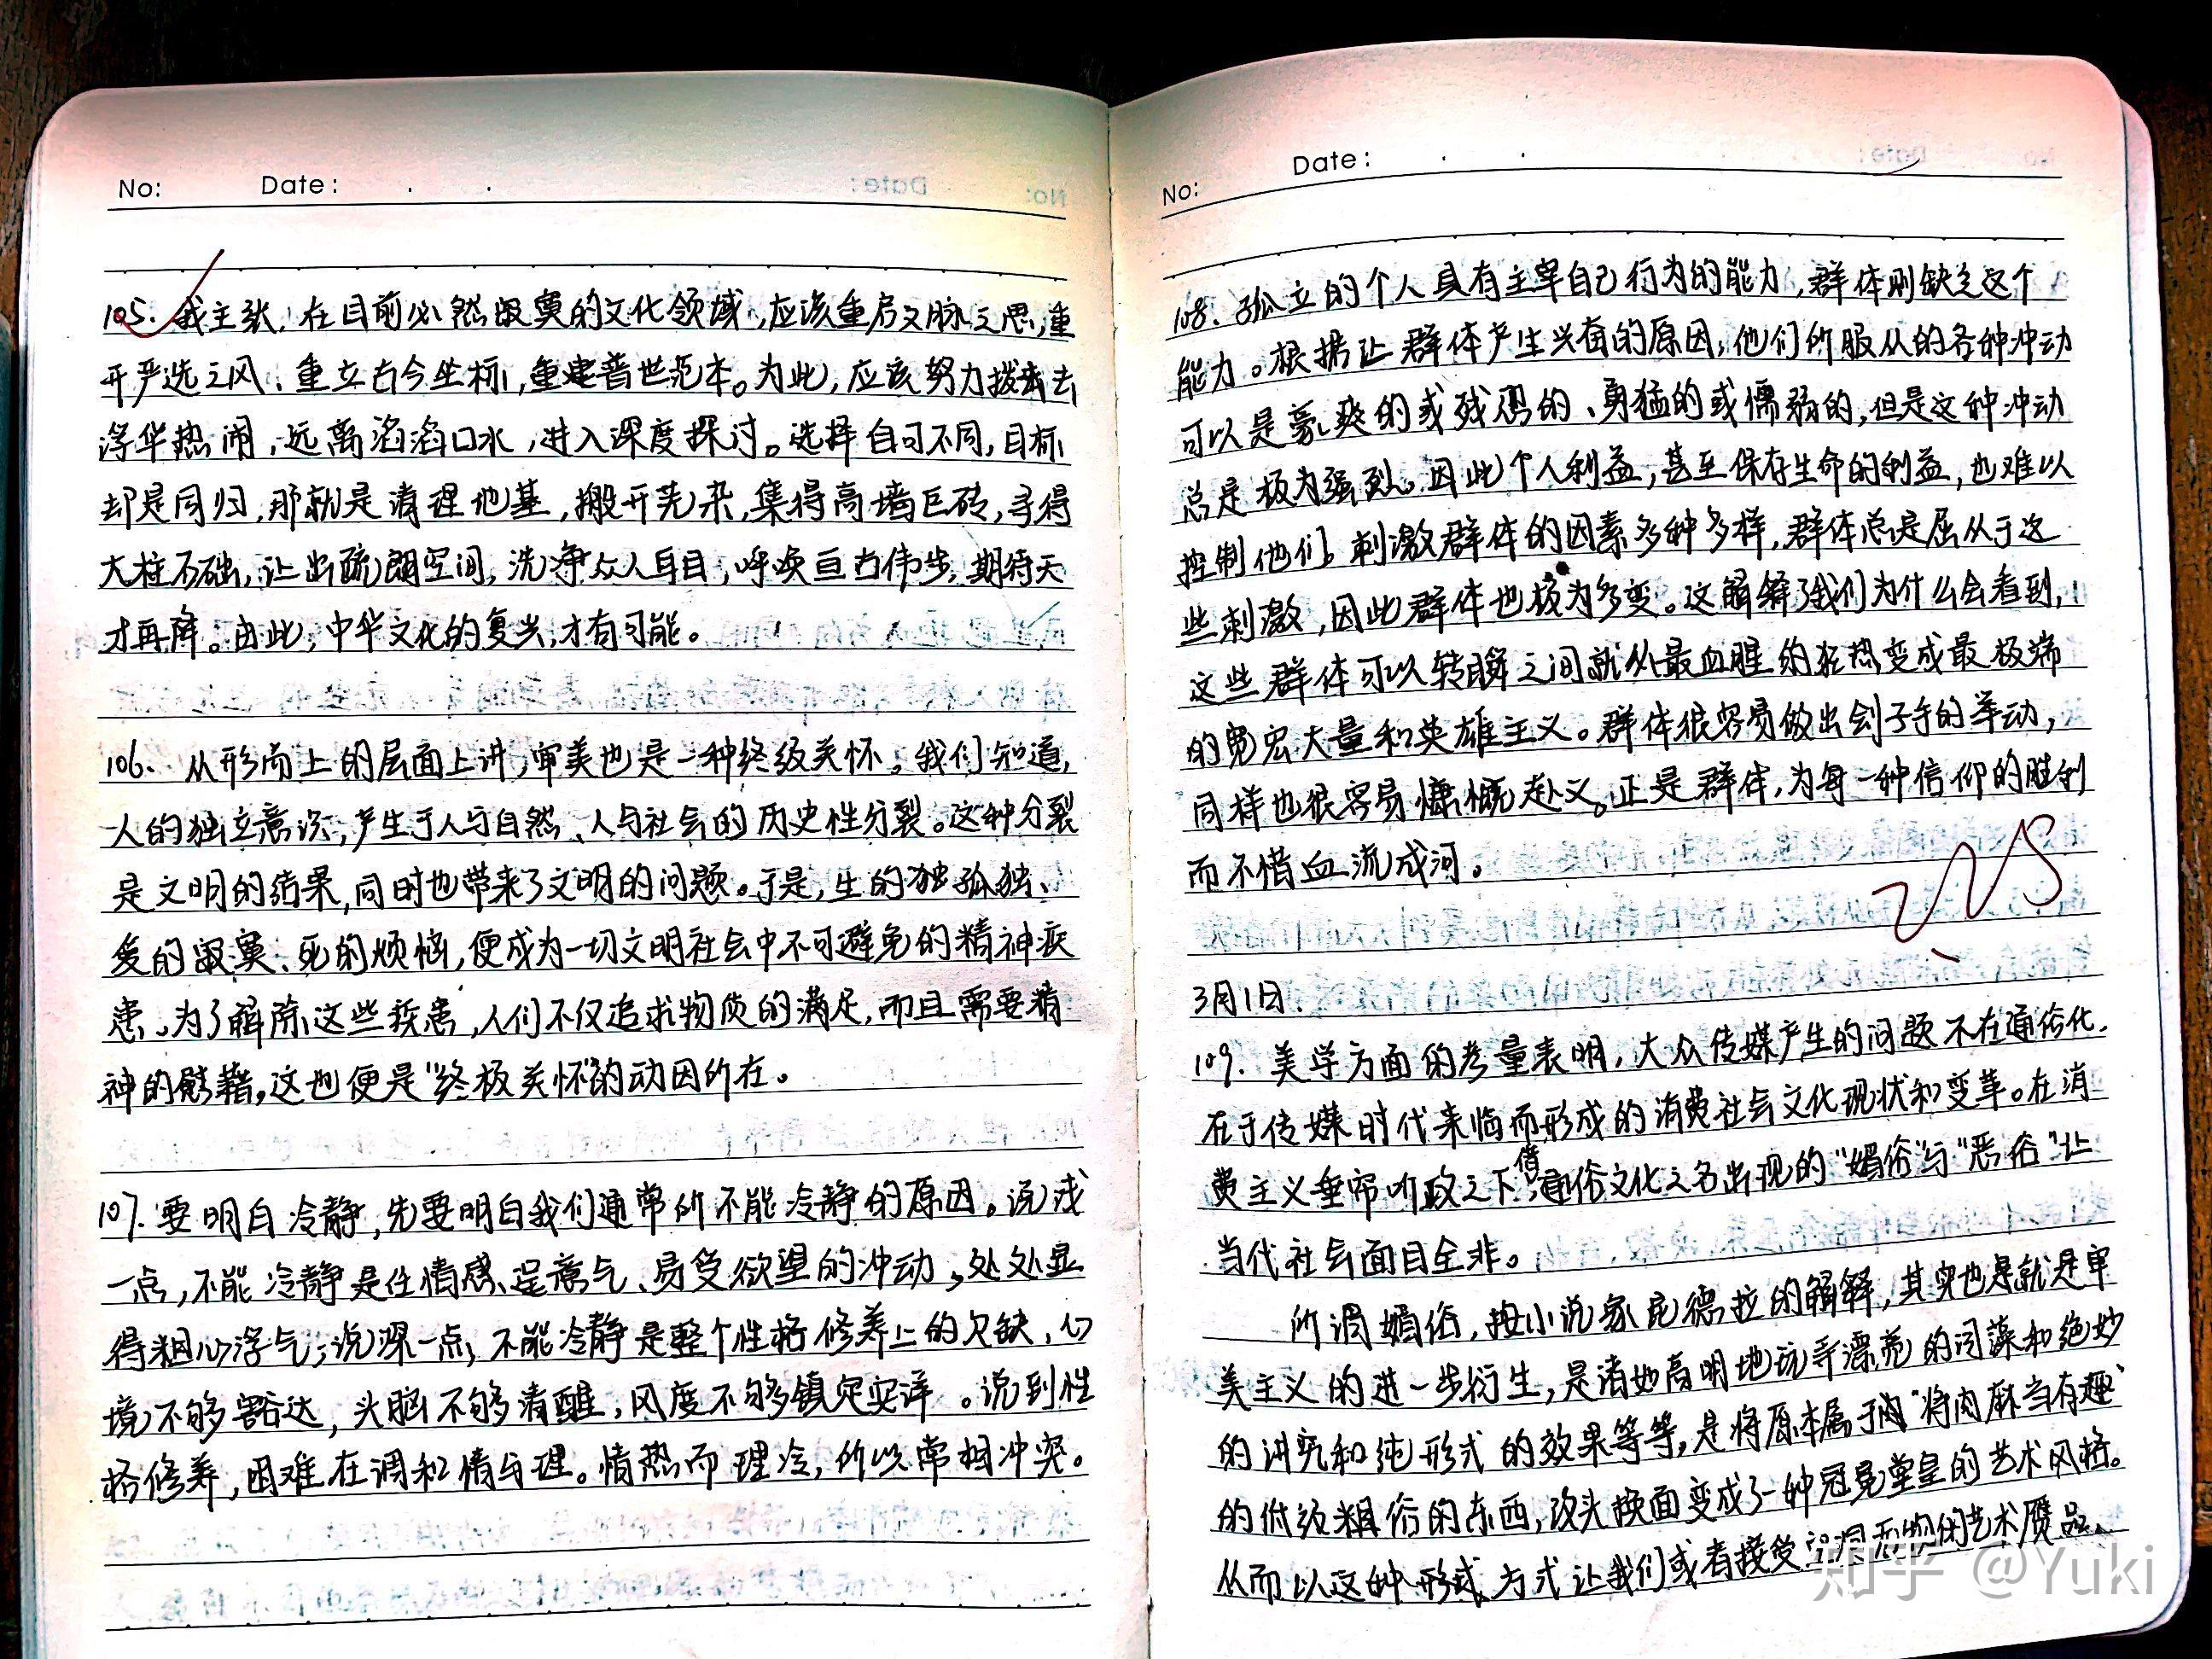 No: Date: . .
105. 我主张,在目前必然寂寞的文化领域,应该重启文脉之思,重
开严选之风、重立古今坐标,重建普世范本。为此,应该努力拨去
浮华热闹,远离滔滔口水,进入深度探讨。选择自可不同,目标
却是同归,那就是清理地基,搬开芜杂,集得高墙巨砖,寻得
大柱石础,让出疏朗空间,洗净众人耳目,呼唤亘古伟步,期待天
才再降。由此,中华文化的复兴,才有可能。
106、从形而上的层面上讲,审美也是一种终级关怀。我们知道,
人的独立意识,产生于人与自然、人与社会的历史性分裂。这种分裂
是文明的结果,同时也带来了文明的问题。于是,生的独孤独、
爱的寂寞、死的烦恼,便成为一切文明社会中不可避免的精神疾
患。为了解除这些疾患,人们不仅追求物质的满足,而且需要精
神的慰藉。这也便是“终极关怀”的动因所在。
107. 要明白冷静,先要明白我们通常所不能冷静的原因。说浅
一点,不能冷静是任情感、逞意气、易受欲望的冲动,处处显
得粗心浮气;说深一点,不能冷静是整个性格修养上的欠缺,心
境不够豁达,头脑不够清醒,风度不够镇定安详。说到性
格修养,困难在调和情与理。情热而理冷,所以常相冲突。
No: Date: . .
108、孤立的个人具有主宰自己行为的能力,群体则缺乏这个
能力。根据让群体产生兴奋的原因,他们所服从的各种冲动
可以是豪爽的或残忍的、勇猛的或懦弱的,但是这种冲动
总是极为强烈。因此个人利益,甚至保存生命的利益,也难以
控制他们。刺激群体的因素多种多样,群体总是屈从于这
些刺激,因此群体也极为多变。这解释了我们为什么会看到,
这些群体可以转瞬之间就从最血腥的狂热变成最极端
的宽宏大量和英雄主义。群体很容易做出刽子手的举动,
同样也很容易慷慨赴义。正是群体,为每一种信仰的胜利
而不惜血流成河。
3月1日.
109. 美学方面的考量表明,大众传媒产生的问题不在通俗化.
在于传媒时代来临而形成的消费社会文化现状和变革。在消
费主义垂帘听政之下,借通俗文化之名出现的“媚俗”与“恶俗”让
当代社会面目全非。
所谓媚俗,按小说家昆德拉的解释,其实也是就是审
美主义的进一步衍生,是诸如高明地玩弄漂亮的词藻和绝妙
的讲究和纯形式的效果等等,是将原本属于肉“将肉麻当有趣”
的低级粗俗的东西,改头换面变成了一种冠冕堂皇的艺术风格。
从而以这种形式、方式让我们或者接受空洞无物的艺术赝品、
知乎 @Yuki